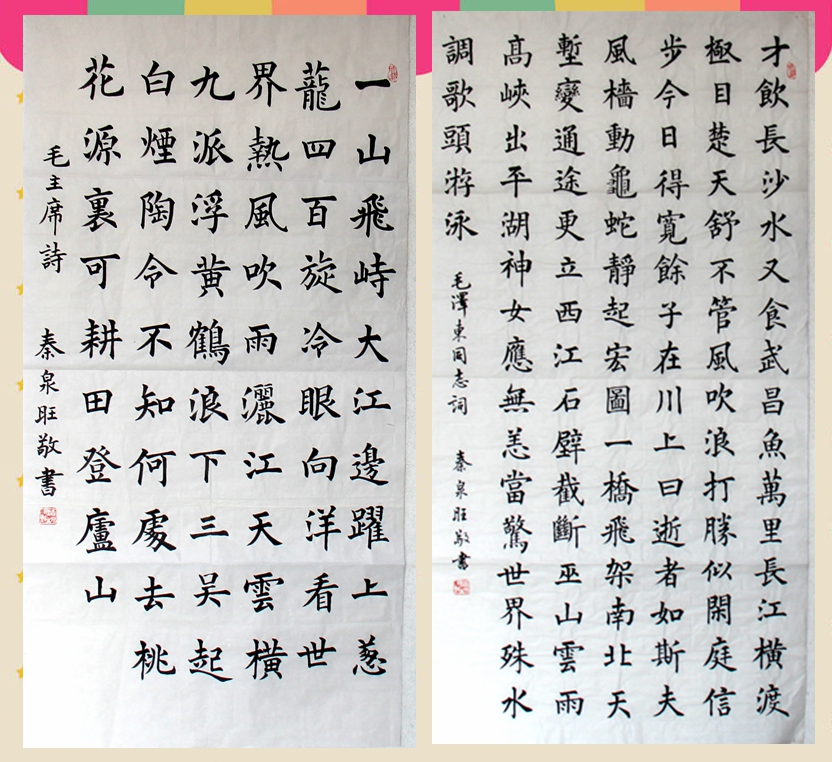 一山飛峙大江邊躍上蔥
蘢四百旋冷眼向洋看世
界熱風吹雨灑江天雲橫
九派浮黄鶴浪下三吴起
白煙陶令不知何處去桃
花源裏可耕田登廬山
毛主席詩 秦泉旺敬書
才飲長沙水又食武昌魚萬里長江橫渡
極目楚天舒不管風吹浪打勝似閑庭信
步今日得寬餘子在川上曰逝者如斯夫
風檣動龜蛇靜起宏圖一橋飛架南北天
塹變通途更立西江石壁截斷巫山雲雨
髙峽出平湖神女應無恙當驚世界殊水
調歌頭游泳
毛澤東同志詞 秦泉旺敬書